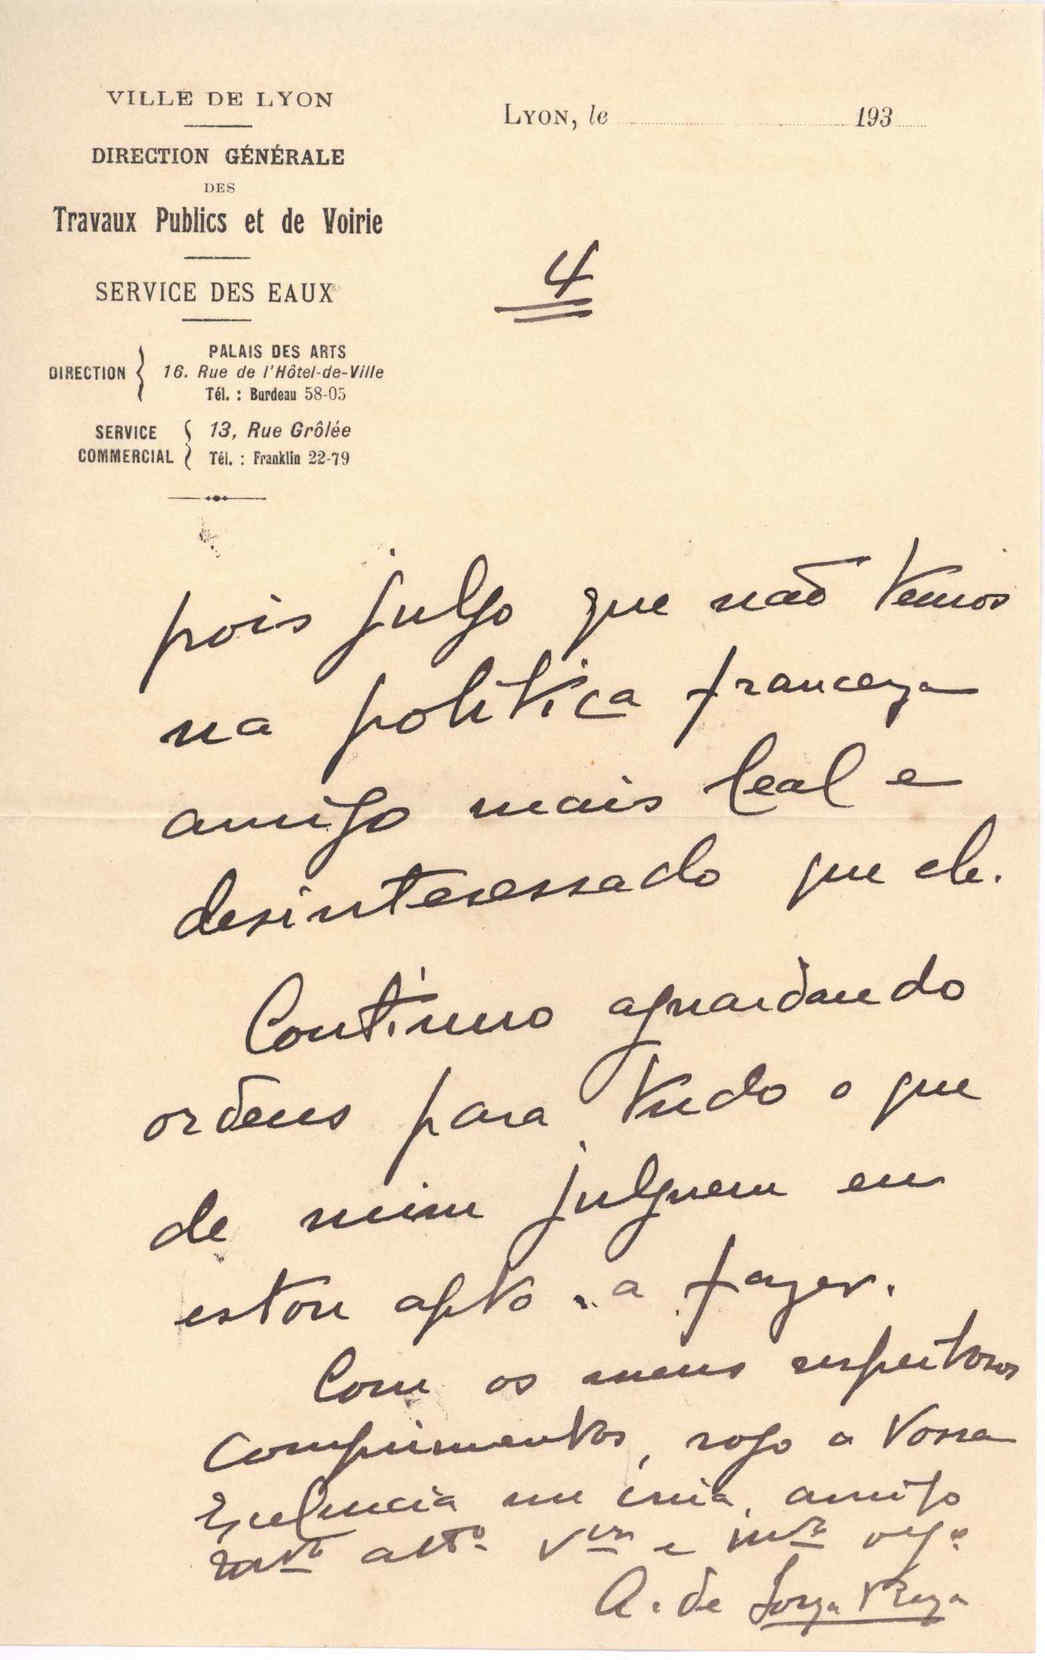 VILLE DE LYON
DIRECTION GÉNÉRALE
DES
Travaux Publics et de Voirie
SERVICE DES EAUX
DIRECTION { PALAIS DES ARTS
16. Rue de l'Hôtel-de-Ville
Tél. : Burdeau 58-05
SERVICE COMMERCIAL { 13, Rue Grôlée
Tél. : Franklin 22-79
LYON, le 193
4
pois julgo que não temos
na politica franceza
amigo mais leal e
desinteressado que ele.
Continuo aguardando
ordens para tudo o que
de mim julguem eu
estou apto a fazer.
Com os meus respeitosos
comprimentos, rogo a Vossa
amigo
att.º e
A. de